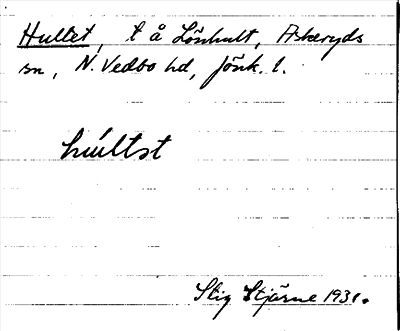 Hultet, t å Lönhult, Askeryds
sn, N. Vedbo hd, Jönk. l.
húltst
Stig Stjärne 1931.